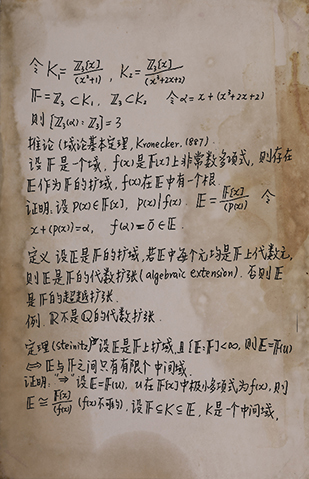 令 K₁ = Z₃[x]/(x²+1), K₂ = Z₃[x]/(x³+2x+2)
F = Z₃ ⊂ K₁, Z₃ ⊂ K₂ 令 α = x + (x³+2x+2)
则 [Z₃(α) : Z₃] = 3
推论 (域论基本定理, Kronecker. 1887).
设 F 是一个域, f(x) 是 F[x] 上非常数多项式, 则存在
E 作为 F 的扩域, f(x) 在 E 中有一个根.
证明: 设 p(x) ∈ F[x], p(x) | f(x). E = F[x]/(p(x)) 令
x + (p(x)) = α, f(α) = 0̄ ∈ E.
定义 设 E 是 F 的扩域, 若 E 中每个元均是 F 上代数元,
则 E 是 F 的代数扩张 (algebraic extension). 否则 E
是 F 的超越扩张.
例. R 不是 Q 的代数扩张.
定理 (Steinitz) 设 E 是 F 上扩域, 且 [E:F] < ∞, 则 E = F(u)
⇔ E 与 F 之间只有有限个中间域.
证明: "⇒" 设 E = F(u), u 在 F[x] 中极小多项式为 f(x), 则
E ≅ F[x]/(f(x)) (f(x) 不可约). 设 F ⊆ K ⊆ E, K 是一个中间域,